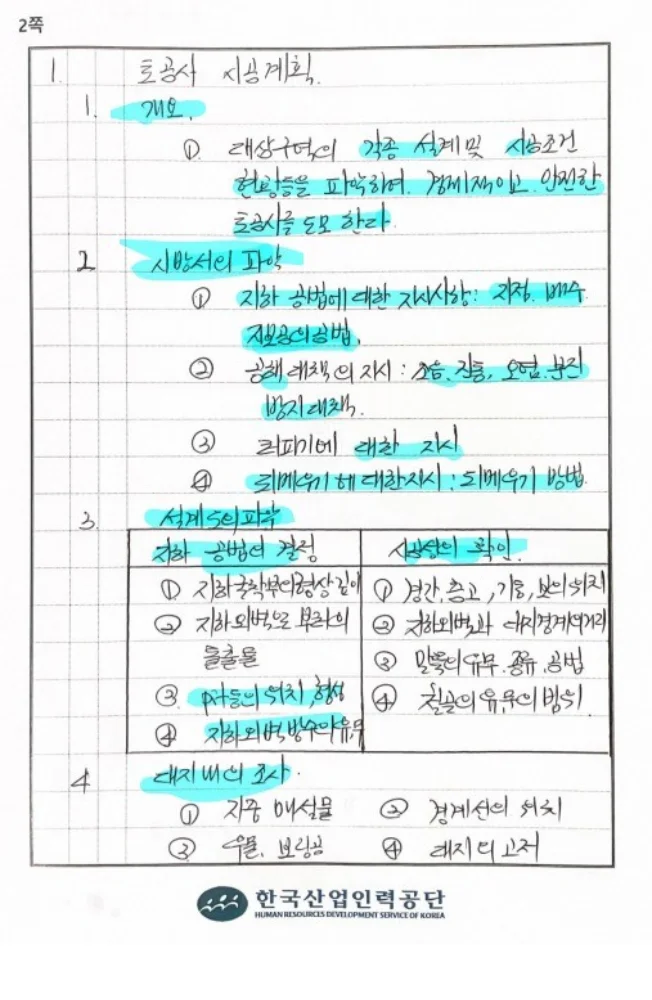 2쪽
1. 토공사 시공계획.
1. 개요.
① 대상구역의 각종 설계 및 시공조건
현황등을 파악하여, 경제적이고 안전한
토공사를 도모 한다.
2 시방서의 파악
① 지하 공법에 대한 지시사항: 지정. 배수.
공법.
② 공해 대책의 지시 : 소음. 진동, 오염. 분진
방지대책.
③ 터파기에 대한 지시
④ 되메우기에 대한지시 : 되메우기 방법.
3. 설계도의 파악
지하 공법의 결정 시공성의 확인.
① 지하 형상 깊이 ① 경간, 층고, 기둥, 보의 위치
② 지하외벽으로 부터의 ② 지하외벽과 대지경계의 거리
돌출물 ③ 말뚝의 유무. 종류. 공법
③ pit등의 위치, 형상 ④ 철골의 유,무의 범위.
④ 지하외벽, 방수의 유,무
4 대지내의 조사.
① 지중 매설물 ② 경계선의 위치
③ 우물, 보링공 ④ 대지의 고저
한국산업인력공단
HUMAN RESOURCES DEVELOPMENT SERVICE OF KOREA